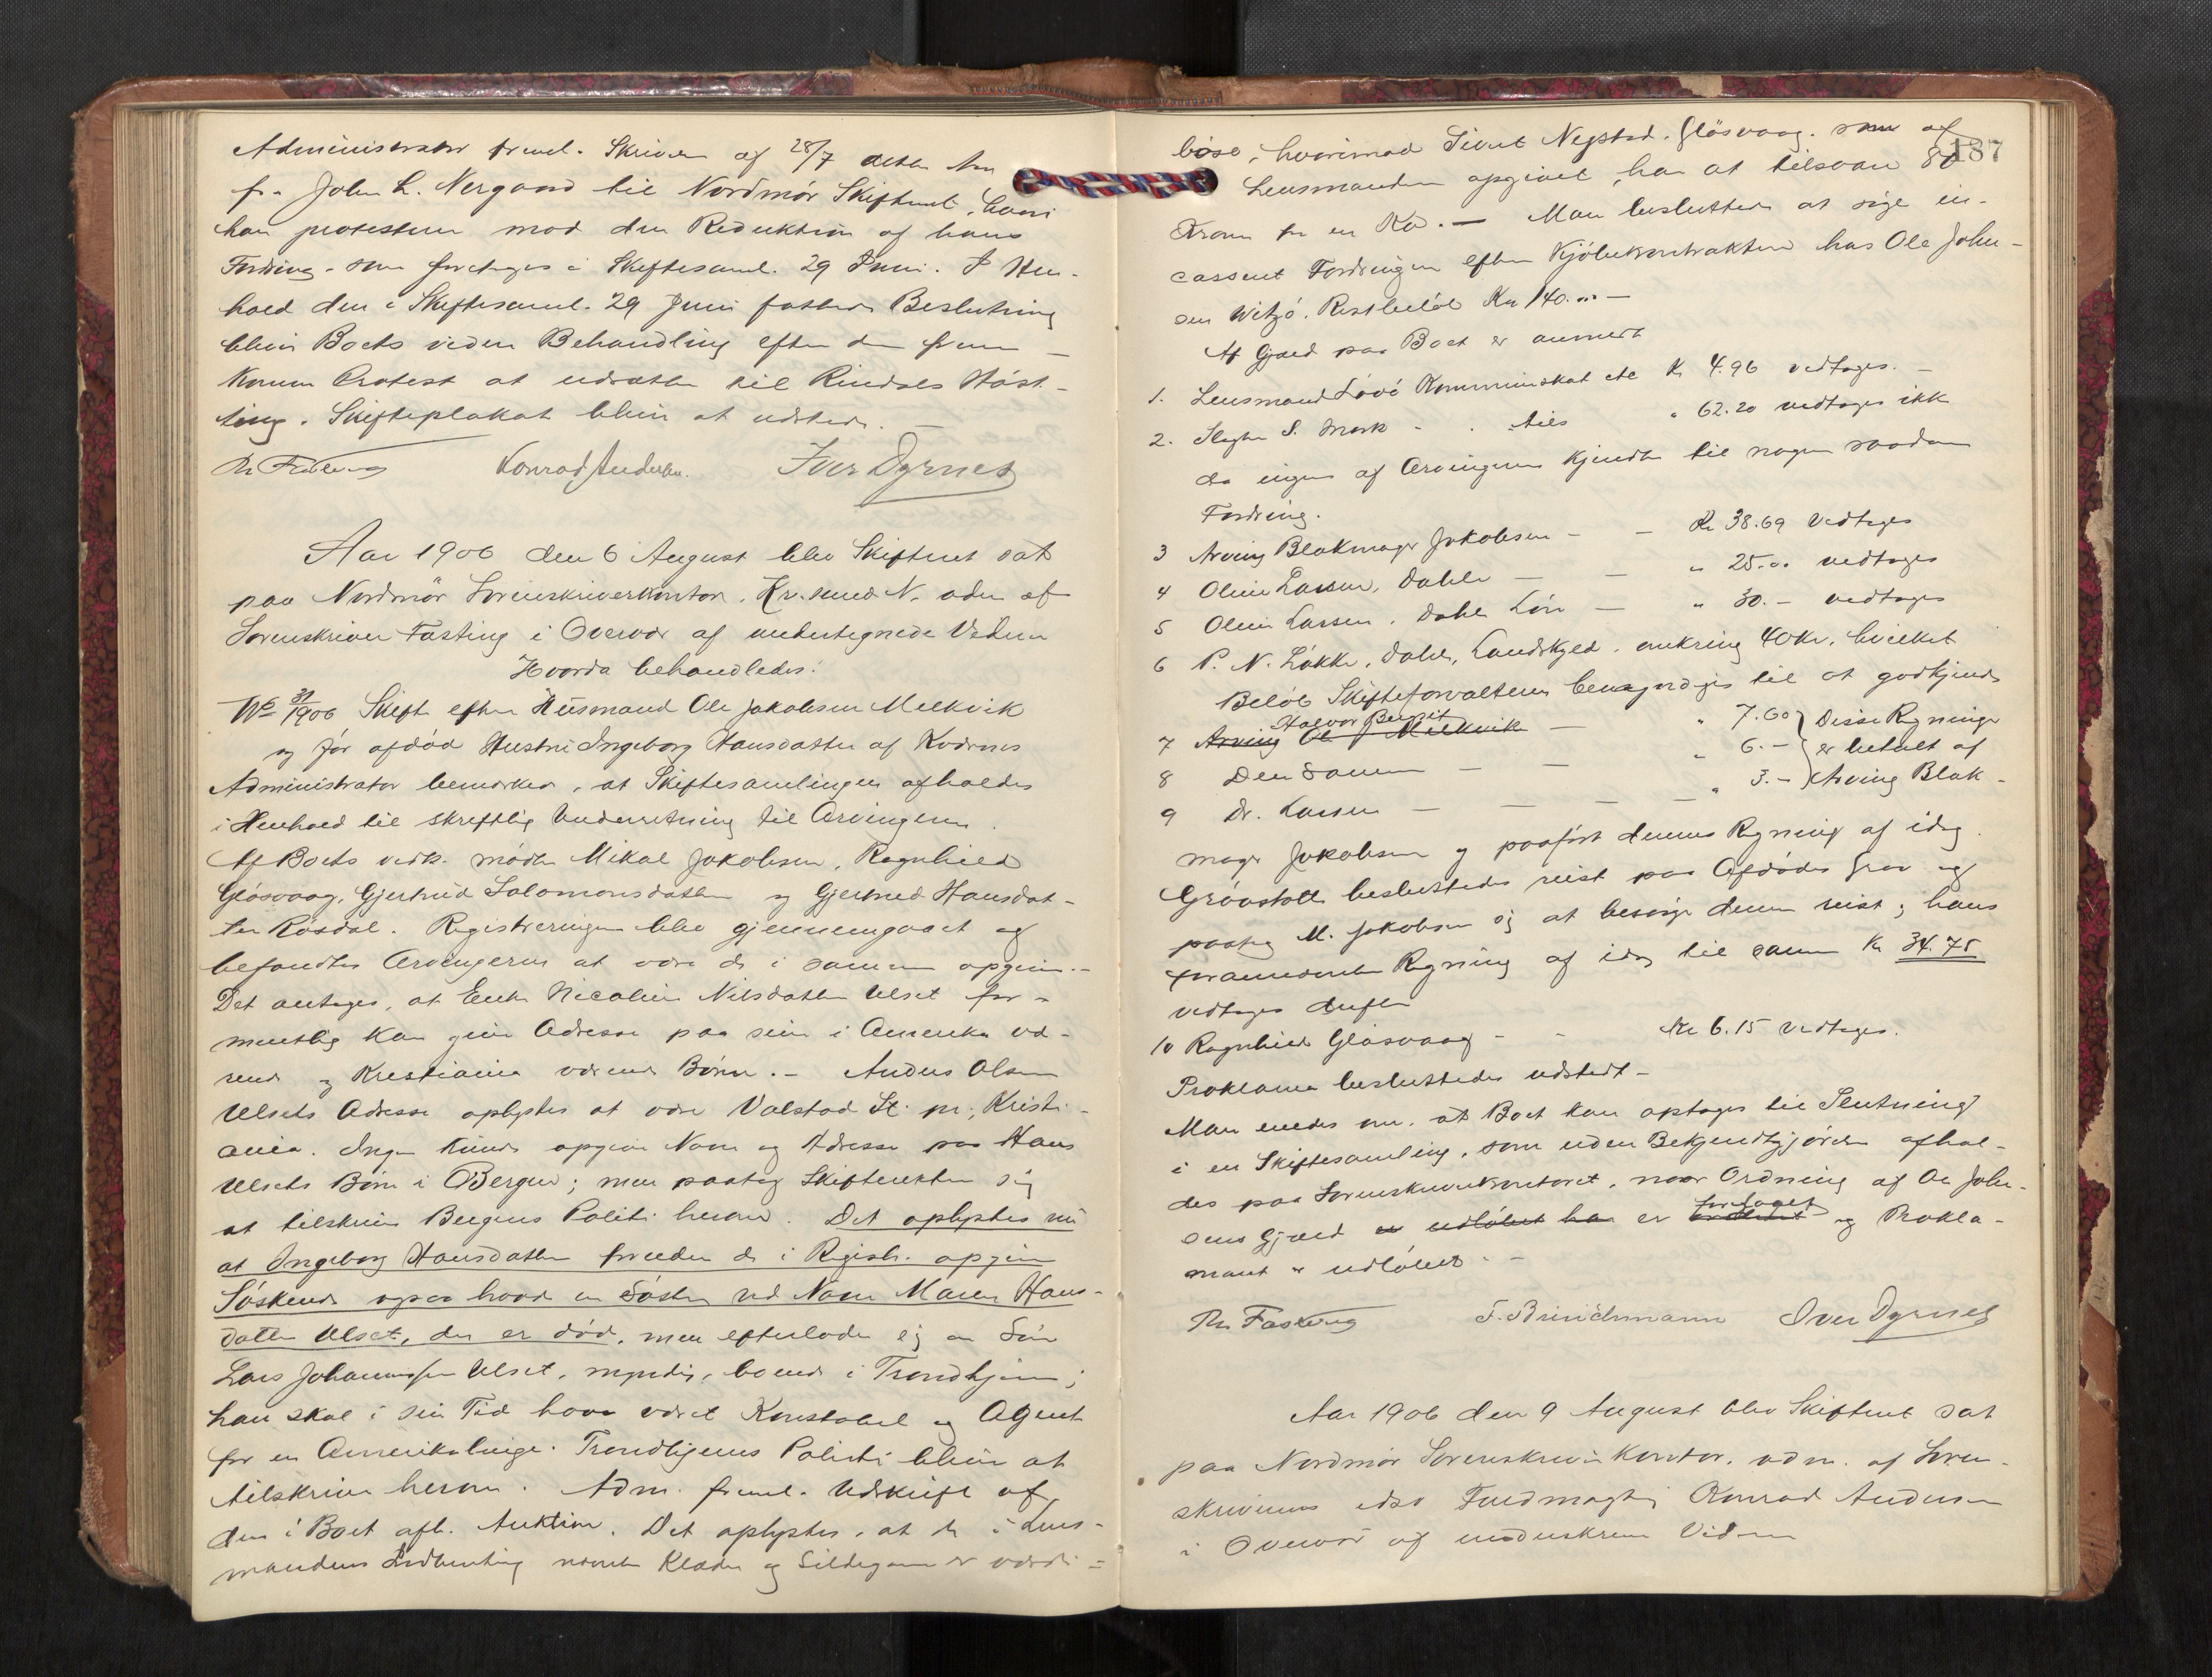 Administrator freml. Skrivn af 28/7 dette Aar
fra John L. Nergaard til Nordmör Skifteret, hvori
han protesterer mod den Reduktion af hans
Fordring som foretoges i Skiftesaml. 29 Juni. I Hen-
hold den i Skiftesaml. 29 Juni fattede Beslutning
bliver Boets videre Behandling efter den frem-
komne Protest at udsætte til Rindals Höst-
ting. Skifteplakat bliver at udstede. —
Th. Fasting Konrad Andersen. Iver Dyrnes
Aar 1906 den 6 August blev Skifteret sat
paa Nordmör Sorenskriverkontor, Kr.sund N. adm af
Sorenskriver Fasting i Overvær af undertegnede Vidner
Hvorda behandledes:
No 31/1906 Skifte efter Husmand Ole Jakobsen Melkvik
og för afdöd Hustru Ingeborg Hansdatter af Kvernes
Administrator bemærker, at Skiftesamlingen afholdes
i Henhold til skriftlig Underretning til Arvingerne.
Af Boets vedk. mödte Mikal Jakobsen, Ragnhild
Glösvaag, Gjertrud Salomonsdatter og Gjertrud Hansdat-
ter Rösdal. Registreringen blev gjennemgaaet og
befandtes Arvingerne at være de i samme opgivne.-
Det antages, at Enke Nicoline Nilsdatter Ulset for-
mentlig kan give Adresse paa sine i Amerika væ-
rende og Kristiania værende Börn. - Anders Olsen
Ulsets Adresse oplystes at være Valstad St. pr. Kristi-
ania. Ingen kunde opgive Navn og Adresse paa Hans
Ulsets Börn i Bergen; men paatog Skifteretten sig
at tilskrive Bergens Politi herom. Det oplystes nu
at Ingeborg Hansdatter foruden de i Registr. opgivne
Söskende ogsaa havde en Söster ved Navn Maren Hans-
datter Ulset, der er död, men efterlader sig en Sön
Lars Johannessen Ulset, myndig, boende i Trondhjem;
han skal i sin Tid have været Konstabel og Agent
for en Amerikalinje. Trondhjems Politi bliver at
tilskrive herom. Adm. freml. Udskrift af
den i Boet afh. Auktion. Det oplystes, at de i Lens-
mandens Indberetning nævnte Klæder og Sildegarn er værdi=
187
löse, hvorimod Sivert Negstad, Glösvaag, som af
Lensmanden opgivet, har at tilsvare 80
Kroner for en Ko. — Man besluttede at söge in-
casseret Fordringen efter Kjöbekontrakten hos Ole John-
sen Witzö. Restbelöb Kr 140.00 —
Af Gjæld paa Boet er anmeldt
1. Lensmand Lövö Kommuneskat etc Kr 4.96 vedtages. —
2. Slagter S. Mork - . tils " 62.20 vedtages ikke
da ingen af Arvingerne kjendte til nogen saadan
Fordring.
3 Arving Blokmager Jakobsen - — Kr 38.69 Vedtages
4 Oline Larsen, Dahle — — " 25.00 vedtages
5 Oline Larsen, Dahle Lön — " 30.- vedtages
6 P. N. Lökke, Dahle, Landskyld, omkring 40 Kr, hvilket
Belöb Skifteforvalteren bemyndiges til at godkjende
Halvor Bergset
7 Arving Ole J Melkvik — " 7.60 Disse Regninger
8 Den Samme — — " 6.- er betalt af
9 Dr. Larsen — — — — " 3.- Arving Blok-
mager Jakobsen og paafört dennes Regning af idag.
Gravstötte besluttedes reist paa Afdödes Grav og
paatog M. Jakobsen sig at besörge denne reist; hans
foranmeldte Regning af idag til samme Kr 34.75
vedtages derefter
10 Ragnhild Glösvaag - - Kr 6.15 vedtages.
Proklama besluttedes udstedt -
Man enedes om, at Boet kan optages til Slutning
i en Skiftesamling, som uden Bekjendtgjörelse afhol-
des paa Sorenskriverkontoret, naar Ordning af Ole John-
foretaget
sens Gjæld er udlöbet har er ordnet og Prokla-
maet er udlöbet. —
Th. Fasting F. Brinchmann Iver Dyrnes
Aar 1906 den 9 August blev Skifteret sat
paa Nordmör Sorenskriverkontor, adm. af Soren-
skriverens eds. Fuldmægtig Konrad Andersen
i Overvær af underskrevne Vidner